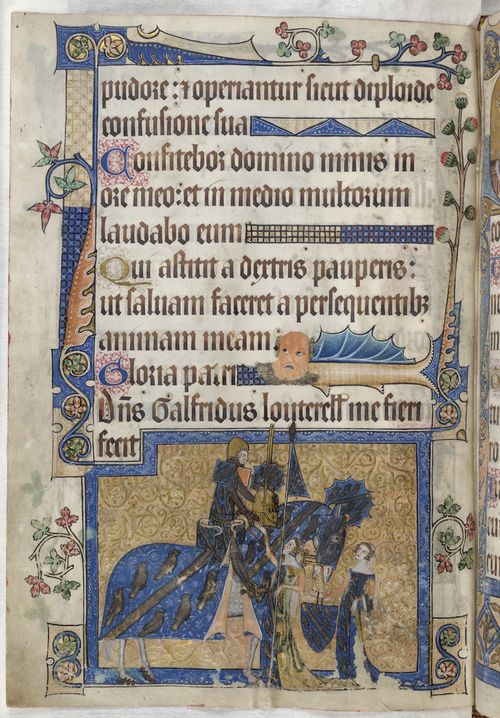 pudore : ⁊ operiantur sicut diploide
confusione sua
Confitebor domino nimis in
ore meo : et in medio multorum
laudabo eum
Qui astitit a dextris pauperis :
ut salvam faceret a persequentibꝫ
animam meam
Gloria patri
Dn̄s Galfridus louterell me fieri
fecit